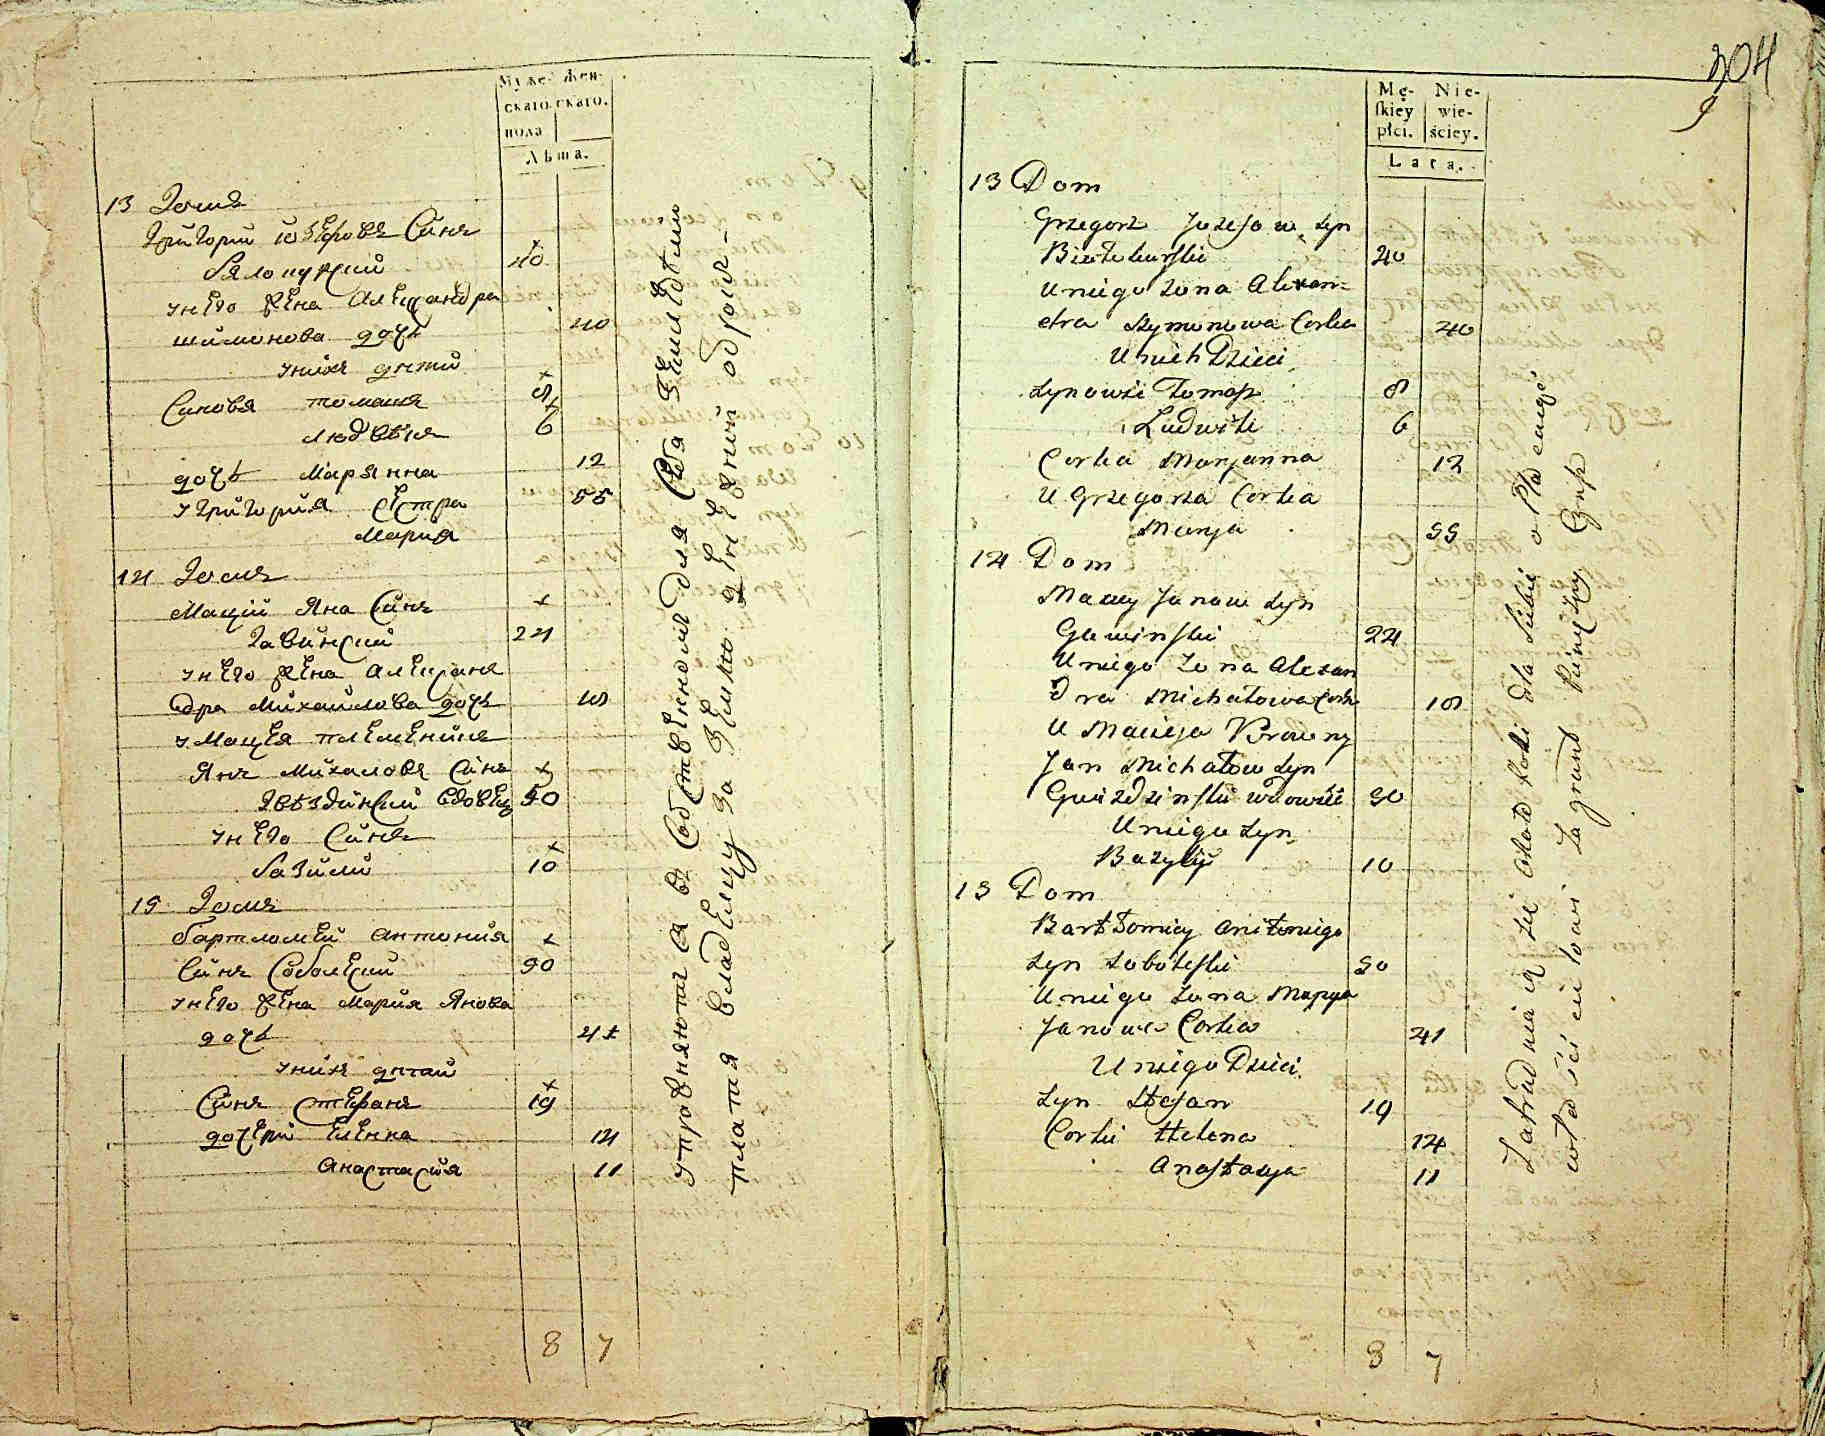 Муже- Жен-
скаго. скаго.
пола
Лѣта.
13 Домъ
Григорий юзефовъ Сынъ
бялоцурский 40
унего жена Александра
шимонова дочь 40
унихъ дѣти
Сыновя томашъ 8
людвикъ 6
дочь Марянна 12
у Григория сестра 55
Мария
14 Домъ
Мацiй Яна Сынъ
Гавинский 24
унего жена Алексан
дра Михайлова дочь 18
у Мацея племенникъ
Янъ Михаловъ Сынъ
Гвѣздинский вдовец 50
унего Сынъ
базили 10
15 Домъ
бартломей Антония
Сынъ Соболеский 50
унего жена Мария Янова
дочь 41
унихъ дѣти
Сынъ Стефанъ 19
дочери Еленна 14
Анастасия 11
8 7
упражняются въ хлѣбопашествѣ для Себя
платя владельцу за землю
304
9
Mę- Nie-
skiey wie-
płci. ściey.
Lata.
13 Dom
Grzegorz Jozefow syn
40
Uniego żona Alexan=
dra Szymonowa Corka 40
Unich Dzieci
Synowie Tomasz 8
Ludwik 6
Corka Marjanna 12
U Grzegorza Corka
Marya 55
14 Dom
Maciey Janow Syn
Gawinski 24
Uniego żona Alexan
dra Michałowa Corka 18
U Macieja Krewny
Jan Michałow Syn
Gwiżdzinski wdowiec 50
Uniego Syn
Bazyly 10
15 Dom
Bartłomiey Antoniego
Syn Soboleski 50
Uniego żona Marya
Janowa Corka 41
Uniego Dzieci
Syn Stefan 19
Corki Helena 14
Anastazya 11
8 7
Zatrudnia ią się około Roli dla siebie opłacaiąc
właścicielowi za grunt